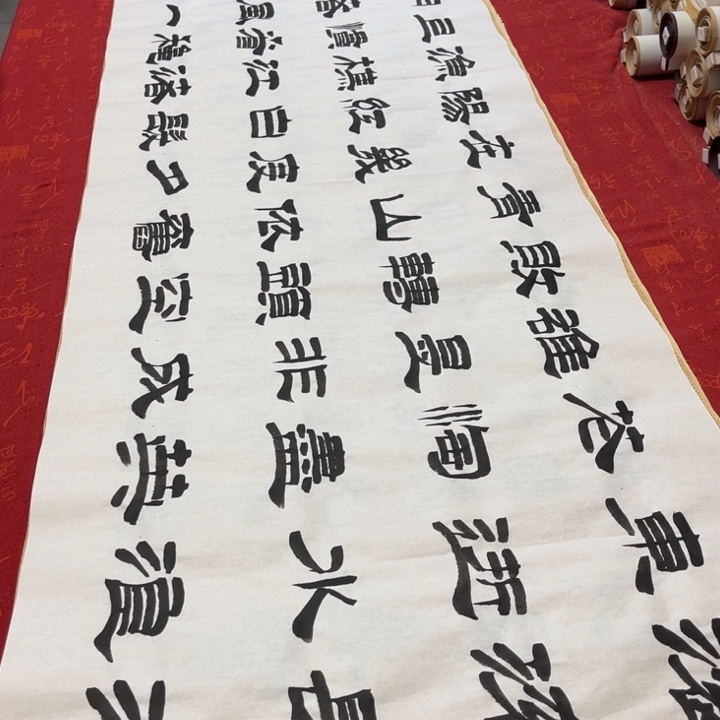 滾滾長江
東逝水浪
花淘盡英
雄是非成
敗轉頭空
青山依舊
在幾度夕
陽紅白髮
漁樵江渚
上慣看秋
月春風一